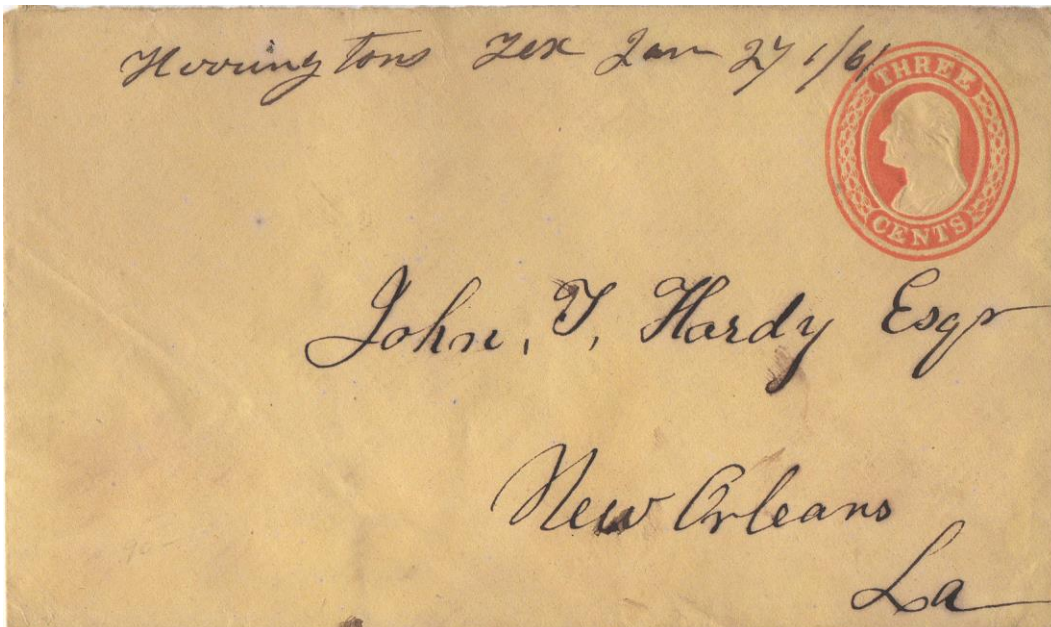 Tex Jan 27 1/61
THREE
CENTS
John, T, Hardy Esqr
New Orleans
La